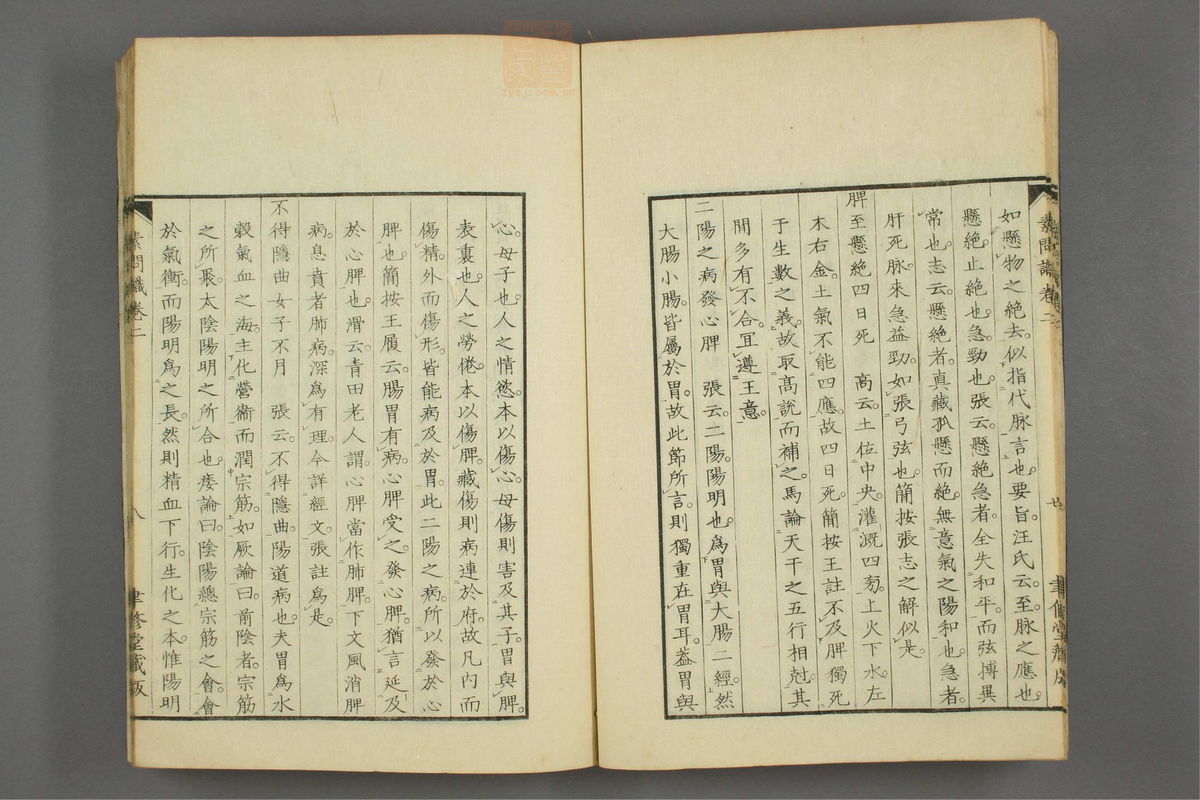 如懸物之絕去。似指代脉言也。要旨汪氏云。至脉之應也。
懸絕止絕也。急勁也。張云。懸絕急者。全失和平。而弦搏異
常也。志云懸絕者。真藏孤懸而絕。無意氣之陽和也。急者。
肝死脉。來急益勁。如張弓弦也。簡按張志之解似是。
脾至懸絕四日死　高云。土位中央。灌溉四旁。上火下水。左
木右金。土氣不能四應。故四日死。簡按王註不及脾獨死
于生數之義。故取高說而補之。馬論天干之五行相尅。其
間多有不合。宜遵王意。
二陽之病發心脾　張云。二陽。陽明也。爲胃與大腸二經。然
大腸小腸。皆屬於胃。故此節所言。則獨重在胃耳。葢胃與
心。母子也。人之情慾。本以傷心。母傷則害及其子。胃與脾。
表裏也。人之勞倦。本以傷脾。藏傷則病連於府。故凡內而
傷精。外而傷形。皆能病及於胃。此二陽之病。所以發於心
脾也。簡按王履云。腸胃有病。心脾受之。發心脾。猶言延及
於心脾也。滑云青田老人謂。心脾當作肺脾。下文風消脾
病。息賁者肺病。深爲有理。今詳經文。張註爲是。
不得隱曲女子不月　張云。不得隱曲。陽道病也。夫胃爲水
穀氣血之海。主化營衞而潤宗筋。如厥論曰。前陰者。宗筋
之所聚。太陰陽明之所合也。痿論曰。陰陽總宗筋之會。會
於氣衝。而陽明爲之長。然則精血下行。生化之本。惟陽明
素問識卷二
八
聿修堂藏版